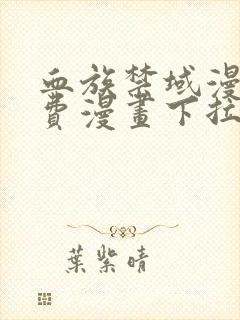 血族禁域漫
費漫畫下拉
葉紫晴